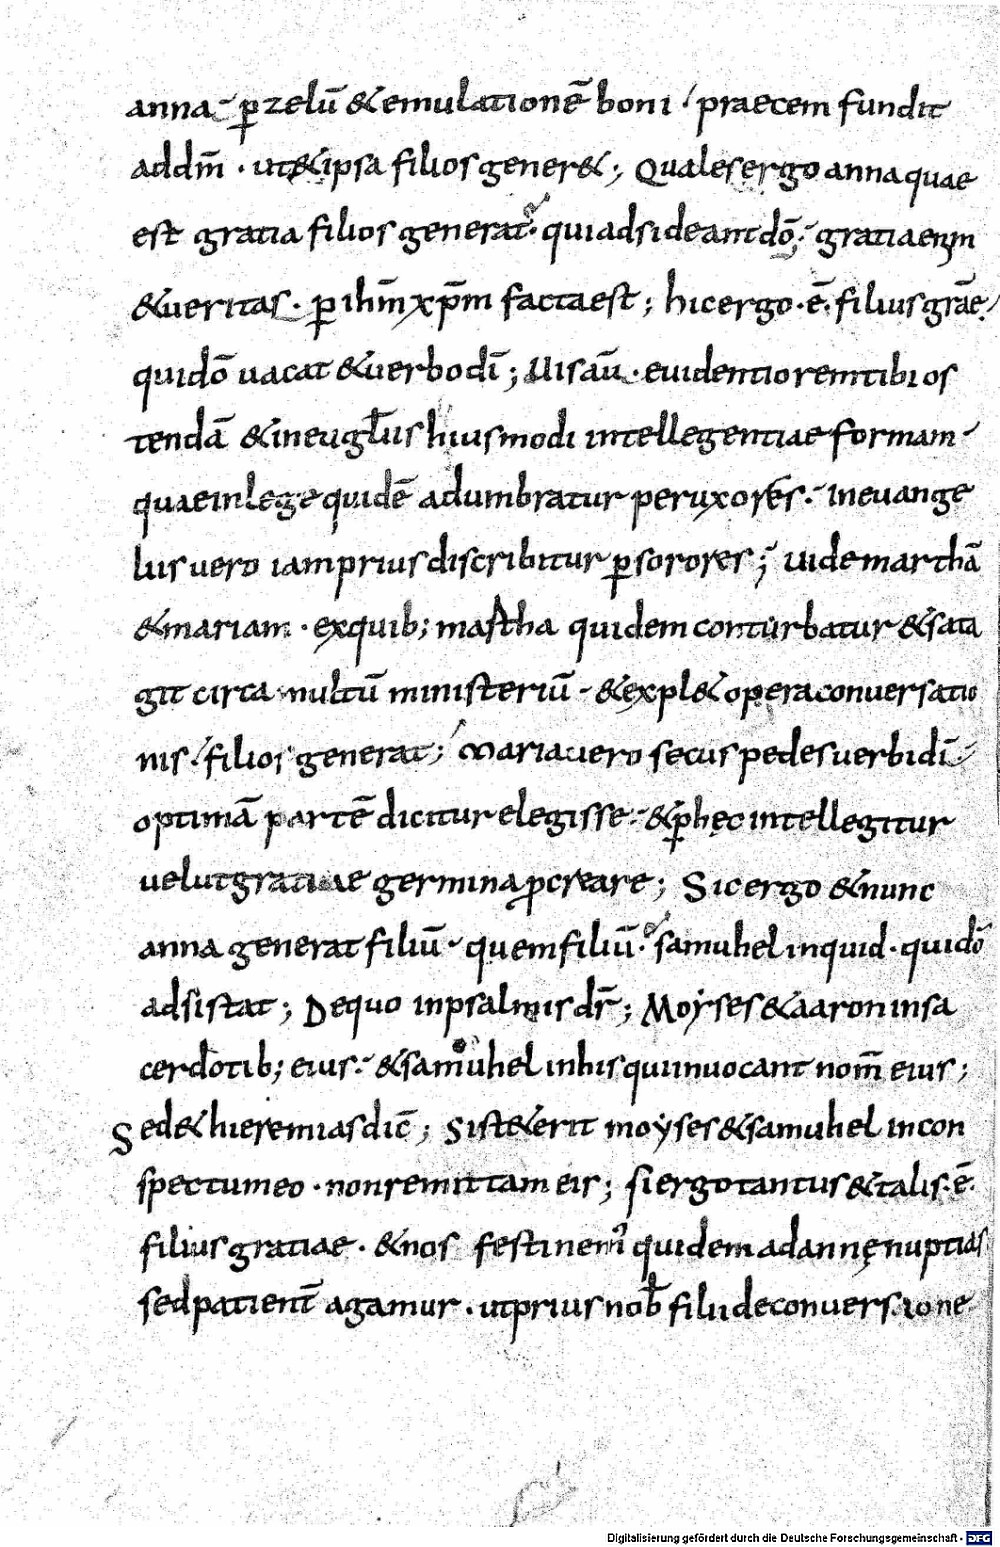 anna p̱ zelū & emulationē boni / praecem fundit
ad dm̄ · ut & ipsa filios gener& ; Quales ergo anna quae
est gratia filios generat · qui adsideant dō ; gratia enim
& ueritas · p̱ ihm̄ xp̄m facta est ; hic ergo · ē · filius grāe /
qui dō uacat & uerbo dī ; Uis aū · euidentiorem tibi os
tendā & in eugl̄iis huiusmodi intellegentiae formam
quae in lege quidē adumbratur per uxores · in euange
liis uero iam prius discribitur p̱ sorores ; uide marthā
& mariam · ex quib; martha quidem conturbatur & sata
git circa multū ministeriū & expl& opera conuersatio
nis / filios generat ; Maria uero secus pedes uerbi dī
optimā partē dicitur elegisse · & p̱ hęc intellegitur
uelut gratiae germina ꝓcreare ; Sic ergo & nunc
anna generat filiū quem filiū · samuhel inquid · qui dō
adsistat ; De quo in psalmis dr̄ ; Moyses & aaron in sa
cerdotib; eius · & samuhel in his qui inuocant nom̄ eius ;
Sed & hieremias dic̄ ; Sist&erit moyses & samuhel in con
spectu meo · non remittam eis ; si ergo tantus & talis · ē ·
filius gratiae · & nos festinem᾿ quidem ad annę nuptias
sed patient̄ agamur · ut prius nob̄ filii de conuersione
Digitalisierung gefördert durch die Deutsche Forschungsgemeinschaft - DFG